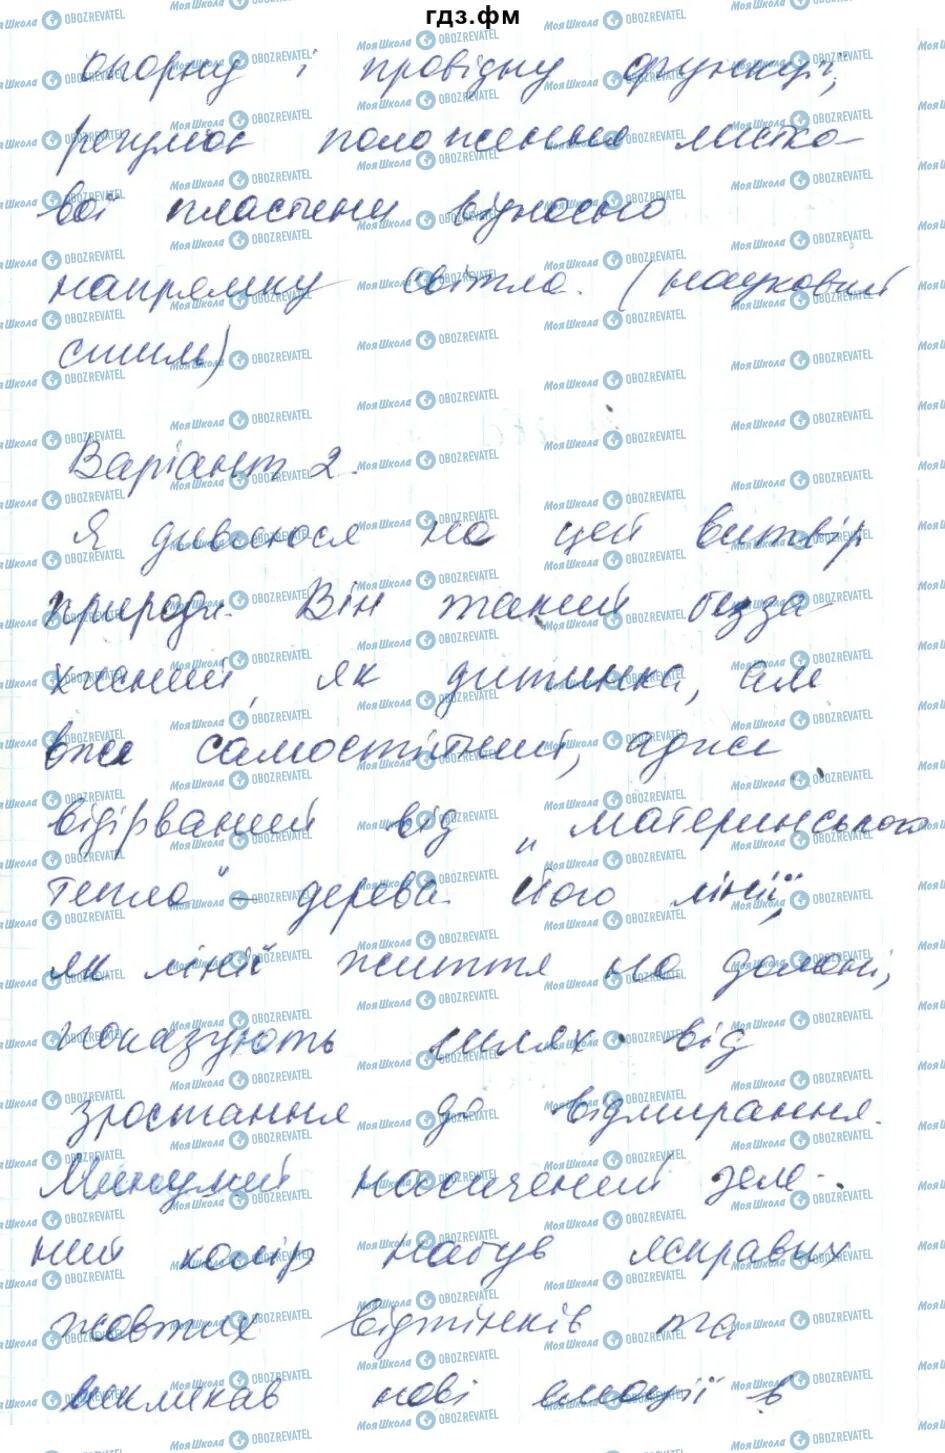 гдз.фм
опорну і провідну функції,
регулює положення листко-
вої пластини відносно
напрямку світла. (науковий
стиль)
Варіант 2.
Я дивлюся на цей витвір
природи. Він такий безза-
хисний, як дитинка, але
вже самостійний, адже
відірваний від „материнського
тепла" – дерева. Його лінії,
як лінії життя на долоні,
показують шлях від
зростання до відмирання.
Минулий насичений зеле-
ний колір набув яскравих
жовтих відтінків та
викликав нові емоції в